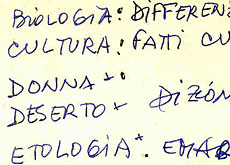 BIOLOGIA: DIFFEREN
CULTURA: FATTI CU
DONNA+:
DESERTO+ DIZÓN
ETOLOGIA+. EMAR